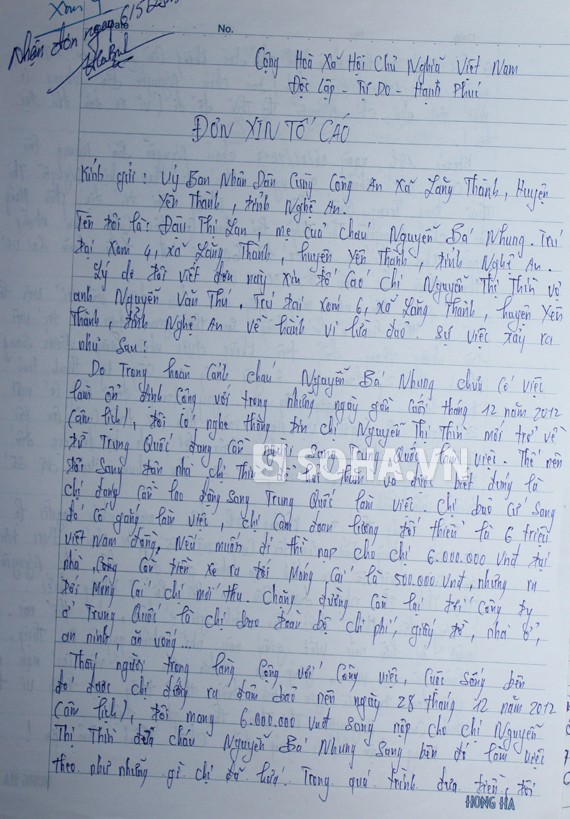 Xóm 4
Nhận đơn ngày 6/5
Date
No.
Cộng Hoà Xã Hội Chủ Nghĩa Việt Nam
Độc Lập - Tự Do - Hạnh Phúc
ĐƠN XIN TỐ CÁO
Kính gửi: Uỷ Ban Nhân Dân Cùng Công An Xã Lăng Thành, Huyện
Yên Thành, tỉnh Nghệ An.
Tên tôi là: Đậu Thị Lan, mẹ của cháu Nguyễn Bá Nhung. Trú
tại xóm 4, xã Lăng Thành, huyện Yên Thành, tỉnh Nghệ An.
Lý do tôi viết đơn này xin tố cáo chị Nguyễn Thị Thìn vợ
anh Nguyễn Văn Thu. Trú tại xóm 6, xã Lăng Thành, huyện Yên
Thành, tỉnh Nghệ An về hành vi lừa đảo. Sự việc xảy ra
như sau:
Do trong hoàn cảnh cháu Nguyễn Bá Nhung chưa có việc
làm ổn định cộng với trong những ngày gần cuối tháng 12 năm 2012
(âm lịch), tôi có nghe thông tin chị Nguyễn Thị Thìn mới trở về
từ Trung Quốc đang cần người sang Trung Quốc làm việc. Thế nên
tôi sang tận nhà chị Thìn và được biết đúng là
chị đang cần lao động sang Trung Quốc làm việc. Chị bảo cứ sang
đó cố gắng làm việc, chị cam đoan lương tối thiểu là 6 triệu
việt Nam đồng. Nếu muốn đi thì nạp cho chị 6.000.000 vnđ tại
nhà, cộng còn tiền xe ra tới Móng Cái là 500.000 vnđ, nhưng ra
tới Móng Cái chị mới thu. Chặng đường còn lại tới công ty
ở Trung Quốc là chị bao toàn bộ chi phí, giấy tờ, nhà ở,
an ninh, ăn uống...
Thấy người trong làng cộng với công việc, cuộc sống bên
đó được chị đứng ra đảm bảo nên ngày 28 tháng 12 năm 2012
(âm lịch), tôi mang 6.000.000 vnđ sang nộp cho chị Nguyễn
Thị Thìn đưa cháu Nguyễn Bá Nhung sang bên đó làm việc
theo như những gì chị đã hứa. Trong quá trình đưa tiền, tôi
SOHA.VN
HONG HA